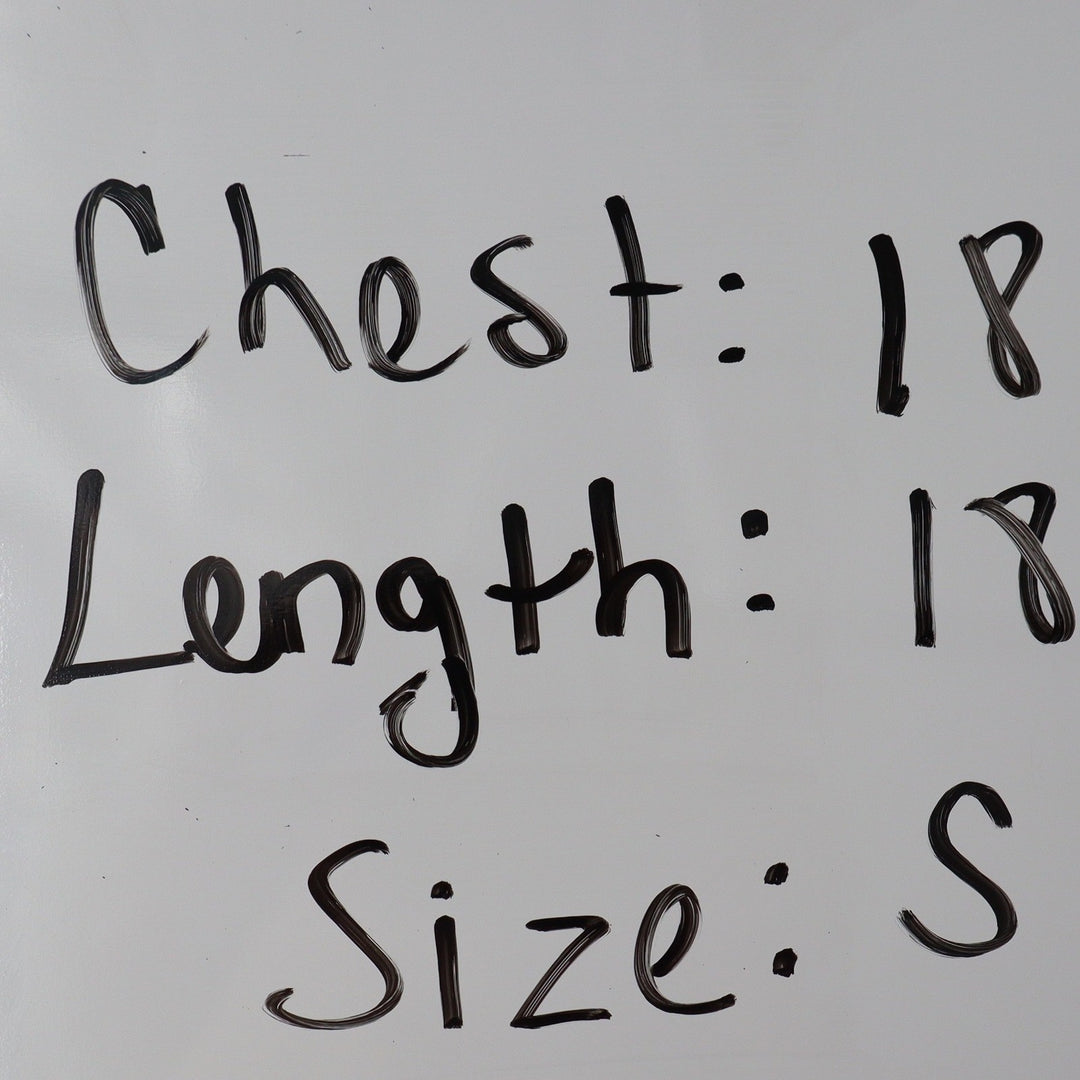 Chest: 18
Length: 18
Size: S